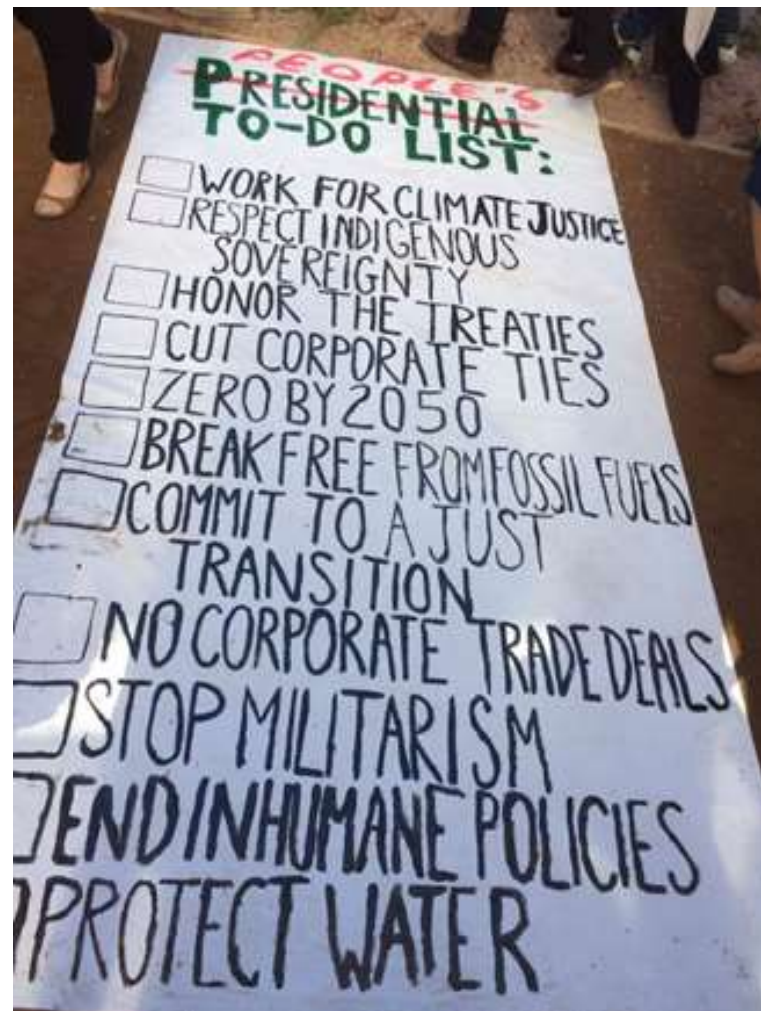 PEOPLE'S
PRESIDENTIAL
TO-DO LIST:
WORK FOR CLIMATE JUSTICE
RESPECT INDIGENOUS
SOVEREIGNTY
HONOR THE TREATIES
CUT CORPORATE TIES
ZERO BY 2050
BREAK FREE FROM FOSSIL FUELS
COMMIT TO A JUST
TRANSITION
NO CORPORATE TRADE DEALS
STOP MILITARISM
END INHUMANE POLICIES
PROTECT WATER